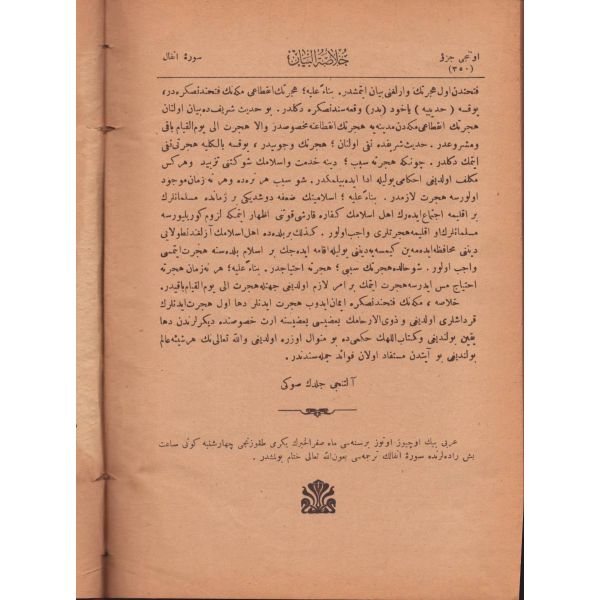 اونجی جزؤ
(٣٥٠)
خلاصة البیان
سورهٔ انفال
فتحندن اول هجرتك وارلغنی بیان ایتمشدر. بناءً علیه؛ هجرتك انقطاعی مكه‌نك فتحندنصكره‌در،
یوقسه (حدیبیه) یاخود (بدر) وقعه‌سندنصكره دكلدر. بو حدیث شریفده بیان اولنان
هجرتك انقطاعی مكه‌دن مدینه‌یه هجرتك انقطاعنه مخصوصدر والا هجرت الی یوم القیام باقی
و مشروعدر. حدیث شریفده نفی اولنان؛ هجرتك وجوبیدر، یوقسه بالكلیه هجرتی نفی
ایتمك دكلدر. چونكه هجرته سبب؛ دینه خدمت واسلامك شوكتنی تزیید وهركس
مكلف اولدیغی احكامی بولیله ادا ایده‌بیلمكدر. شو سبب هر نره‌ده وهر نه زمان موجود
اولورسه هجرت لازمدر. بناءً علیه؛ اسلامیتك ضعفه دوشدیكی بر زمانده مسلمانلرك
بر اقلیمه اجتماع ایده‌رك اهل اسلامك كفاره قارشی قوتنی اظهار ایتمكه لزوم كوریلیورسه
مسلمانلرك او اقلیمه هجرتلری واجب اولور. كذلك بر بلده‌ده اهل اسلامك آزلغندنطولایی
دیننی محافظه ایده‌مین كیمسه‌یه دیننی بولیله اقامه ایده‌جك بر اسلام بلده‌سنه هجرت ایتمسی
واجب اولور. شو حالده هجرتك سببی؛ هجرته احتیاجدر. بناءً علیه؛ هر نه زمان هجرته
احتیاج مس ایدرسه هجرت ایتمك بر امر لازم اولدیغی جهتله هجرت الی یوم القیام باقیدر.
خلاصه، مكه‌نك فتحندنصكره ایمان ایدوب هجرت ایدنلر دها اول هجرت ایدنلرك
قرداشلری اولدیغی و ذوی الارحامك بعضیسی بعضیسنه ارث خصوصنده دیكرلرندن دها
یقین بولندیغی وكتاب اللهك حكمی‌ده بو منوال اوزره اولدیغی والله تعالی‌نك هر شیئه عالم
بولندیغی بو آیتدن مستفاد اولان فوائد جمله‌سندندر.
آلتنجی جلدك صوكی
عربی بیك اوچیوز اوتوز برسنه‌سی ماه صفرالخیرك یكرمی طقوزنجی چهارشنبه كونی ساعت
بش راده‌لرنده سورهٔ انفالك ترجمه‌سی بعون الله تعالی ختام بولمشدر.